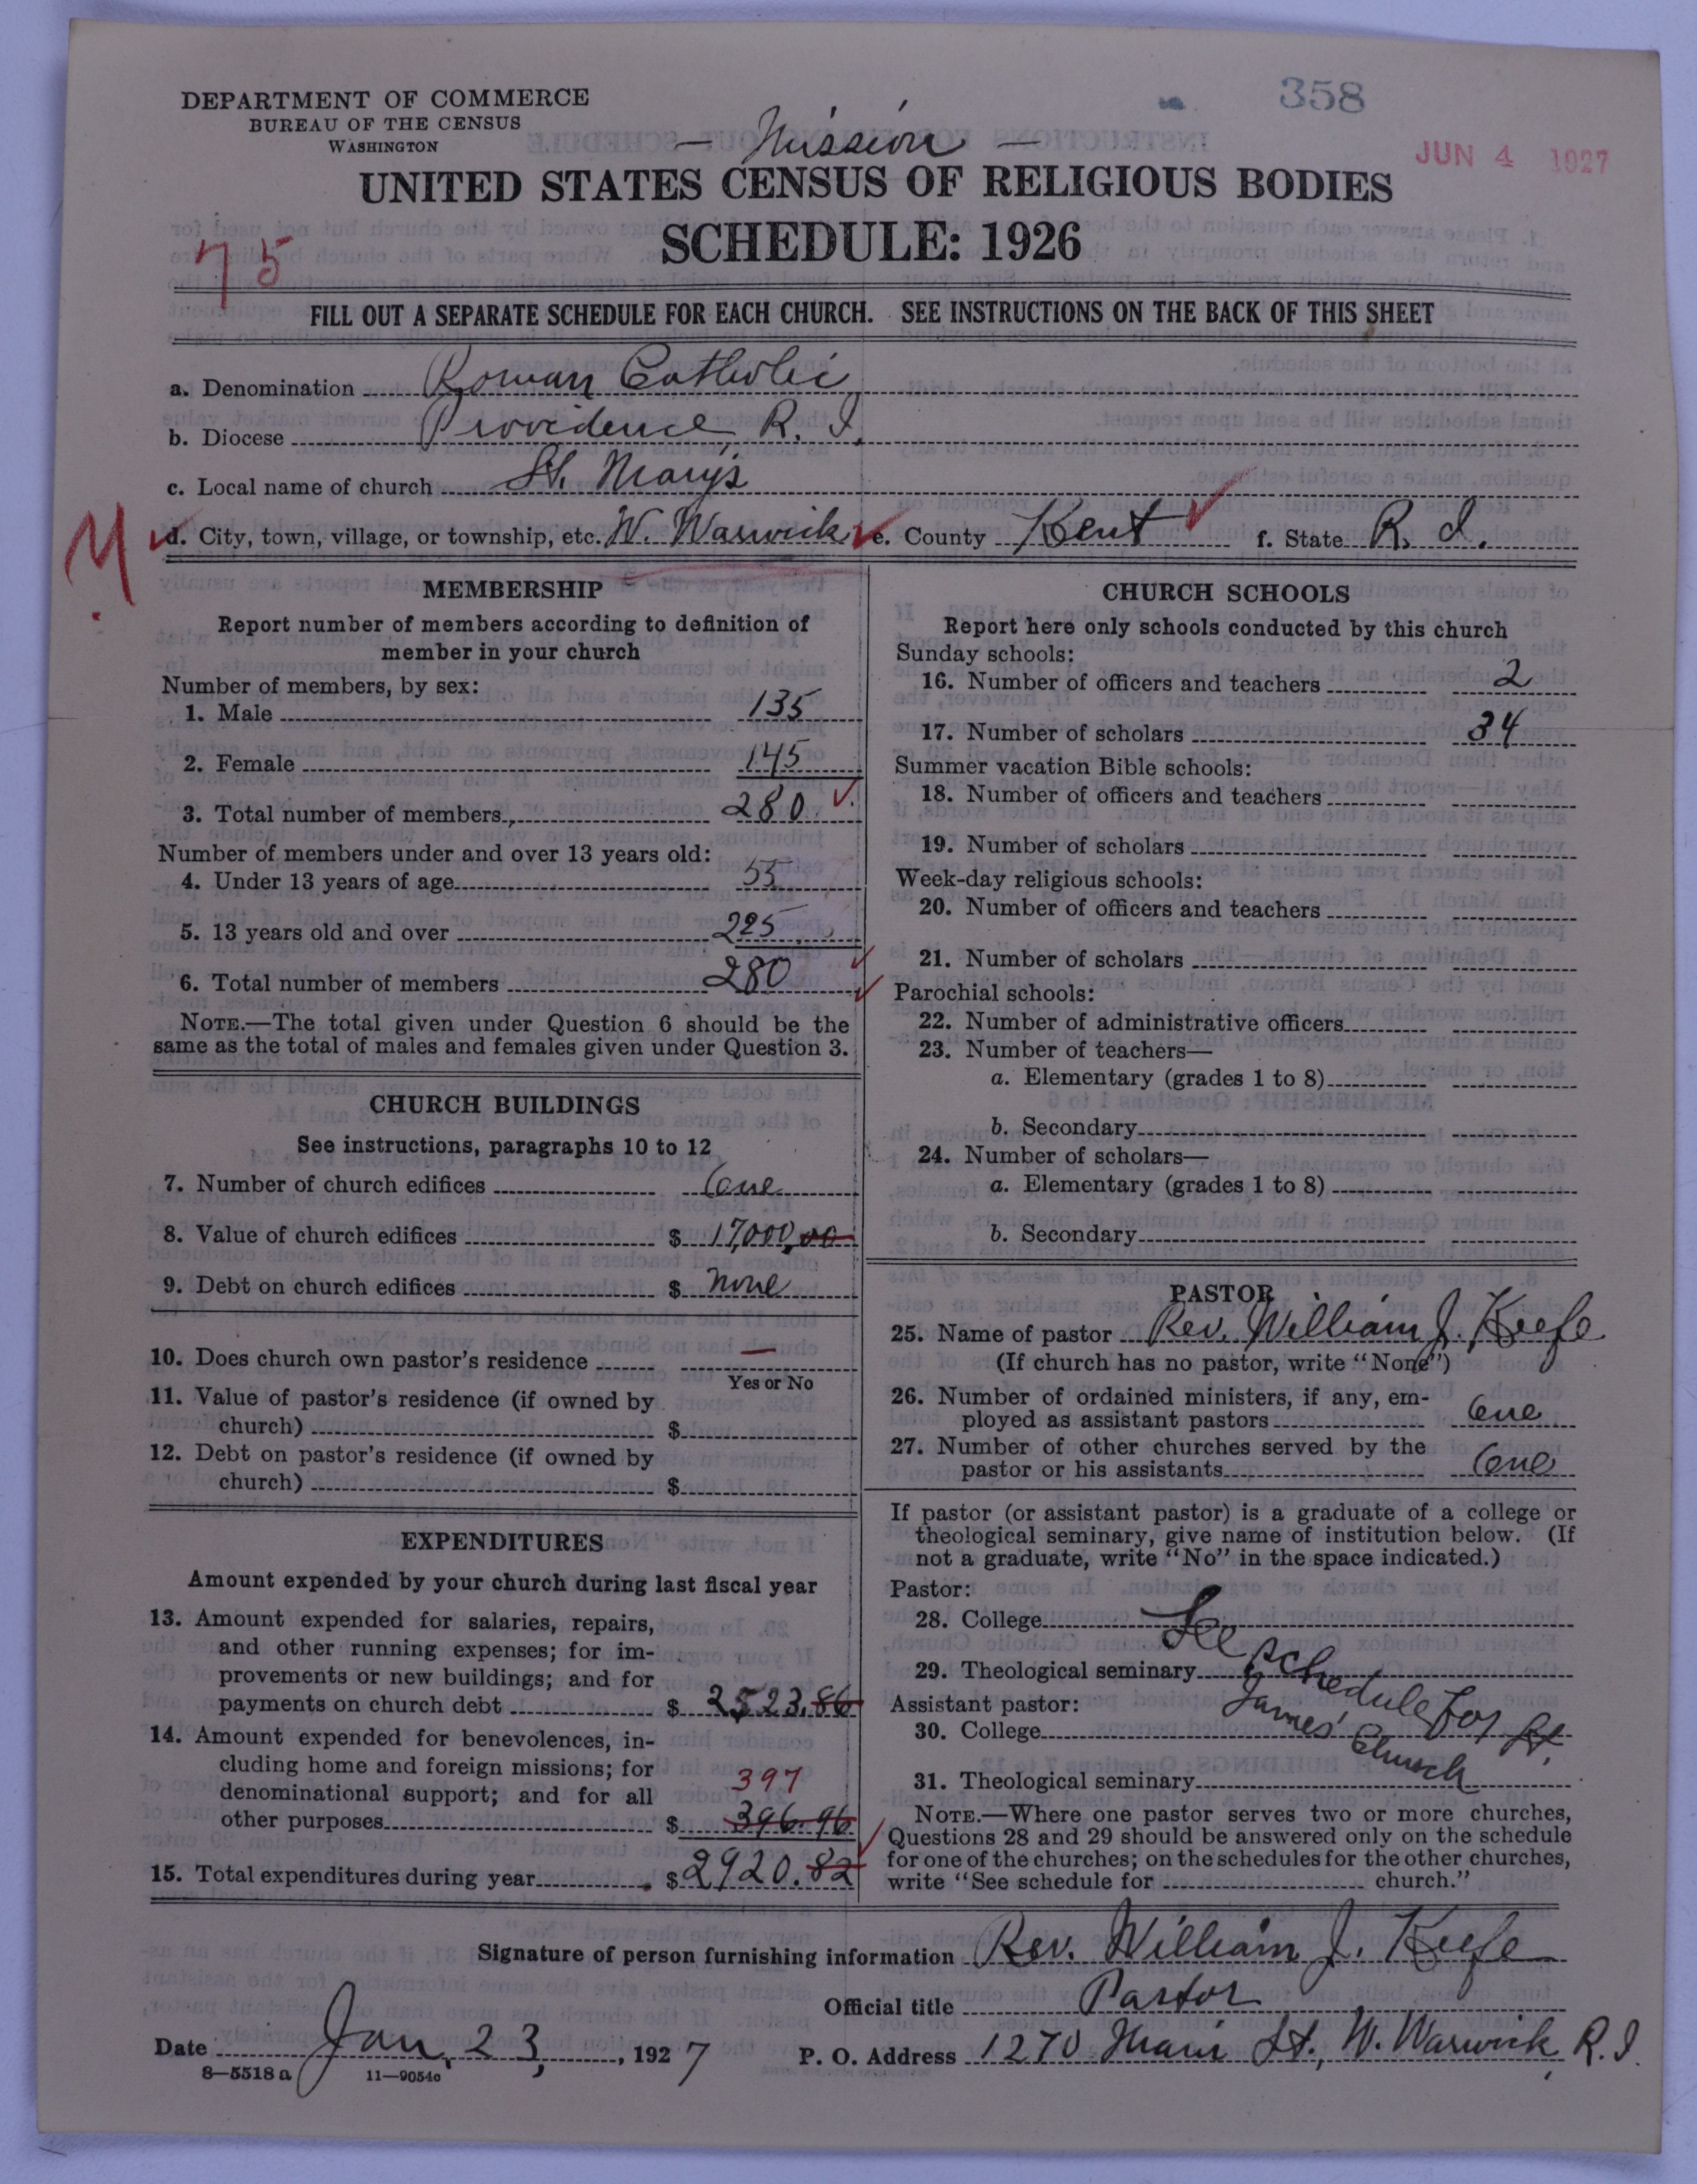 DEPARTMENT OF COMMERCE
BUREAU OF THE CENSUS
WASHINGTON
358
JUN 4 1927
— Mission —
UNITED STATES CENSUS OF RELIGIOUS BODIES
SCHEDULE: 1926
75
FILL OUT A SEPARATE SCHEDULE FOR EACH CHURCH. SEE INSTRUCTIONS ON THE BACK OF THIS SHEET
a. Denomination Roman Catholic
b. Diocese Providence, R. I.
c. Local name of church St. Mary's
M
d. City, town, village, or township, etc. W. Warwick e. County Kent f. State R. I.
MEMBERSHIP
Report number of members according to definition of
member in your church
Number of members, by sex:
1. Male 135
2. Female 145
3. Total number of members 280
Number of members under and over 13 years old:
4. Under 13 years of age 55
5. 13 years old and over 225
6. Total number of members 280
NOTE.—The total given under Question 6 should be the
same as the total of males and females given under Question 3.
CHURCH BUILDINGS
See instructions, paragraphs 10 to 12
7. Number of church edifices One
8. Value of church edifices $ 17,000,00
9. Debt on church edifices $ None
10. Does church own pastor's residence —
Yes or No
11. Value of pastor's residence (if owned by
church) $
12. Debt on pastor's residence (if owned by
church) $
EXPENDITURES
Amount expended by your church during last fiscal year
13. Amount expended for salaries, repairs,
and other running expenses; for im-
provements or new buildings; and for
payments on church debt $ 2523.86
14. Amount expended for benevolences, in-
cluding home and foreign missions; for
denominational support; and for all 397
other purposes $ 396.96
15. Total expenditures during year $ 2920.82
CHURCH SCHOOLS
Report here only schools conducted by this church
Sunday schools:
16. Number of officers and teachers 2
17. Number of scholars 34
Summer vacation Bible schools:
18. Number of officers and teachers
19. Number of scholars
Week-day religious schools:
20. Number of officers and teachers
21. Number of scholars
Parochial schools:
22. Number of administrative officers
23. Number of teachers—
a. Elementary (grades 1 to 8)
b. Secondary
24. Number of scholars—
a. Elementary (grades 1 to 8)
b. Secondary
PASTOR
25. Name of pastor Rev. William J. Keefe
(If church has no pastor, write "None")
26. Number of ordained ministers, if any, em-
ployed as assistant pastors One
27. Number of other churches served by the
pastor or his assistants One
If pastor (or assistant pastor) is a graduate of a college or
theological seminary, give name of institution below. (If
not a graduate, write "No" in the space indicated.)
Pastor:
28. College
29. Theological seminary
Assistant pastor:
30. College
31. Theological seminary
See schedule for St.
James' Church
NOTE.—Where one pastor serves two or more churches,
Questions 28 and 29 should be answered only on the schedule
for one of the churches; on the schedules for the other churches,
write "See schedule for church."
Signature of person furnishing information Rev. William J. Keefe
Official title Pastor
Date Jan, 23, 1927 P. O. Address 1270 Main St., W. Warwick, R.I.
8—5518 a 11—9054c